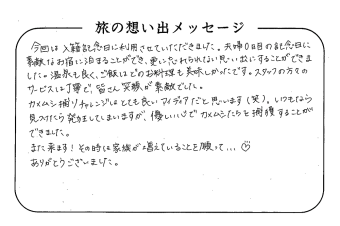 旅の想い出メッセージ
今回は入籍記念日に利用させていただきました。夫婦0日目の記念日に
素敵なお宿に泊まることができ、更に忘れられない思い出にすることができま
した。温泉も良く、ご飯はどのお料理も美味しかったです。スタッフの方々の
サービスは丁寧で、皆さん笑顔が素敵でした。
カメムシ捕りチャレンジはとても良いアイディアだと思います(笑)。いつもなら
見つけたら発狂してしまいますが、優しい心でカメムシたちを捕獲することが
できました。
また来ます!その時は家族が増えていることを願って...
ありがとうございました。